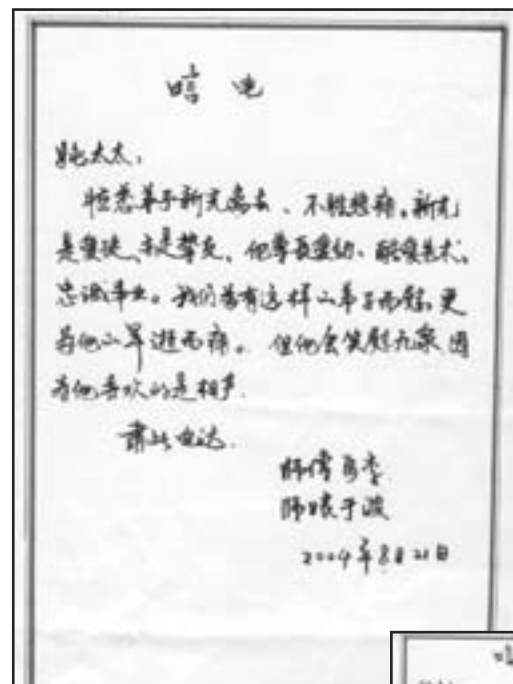 唁电
姚太太:
惊悉弟子新光离去、不胜悲痛。新光
是爱徒、亦是挚友、他尊长爱幼、酷爱艺术、
忠诚事业。我们为有这样的弟子而慰,更
为他的早逝而痛。但他会笑慰九泉因
为他喜欢的是相声.
肃此电达.
师傅
师娘于波
2004年8月21日
唁